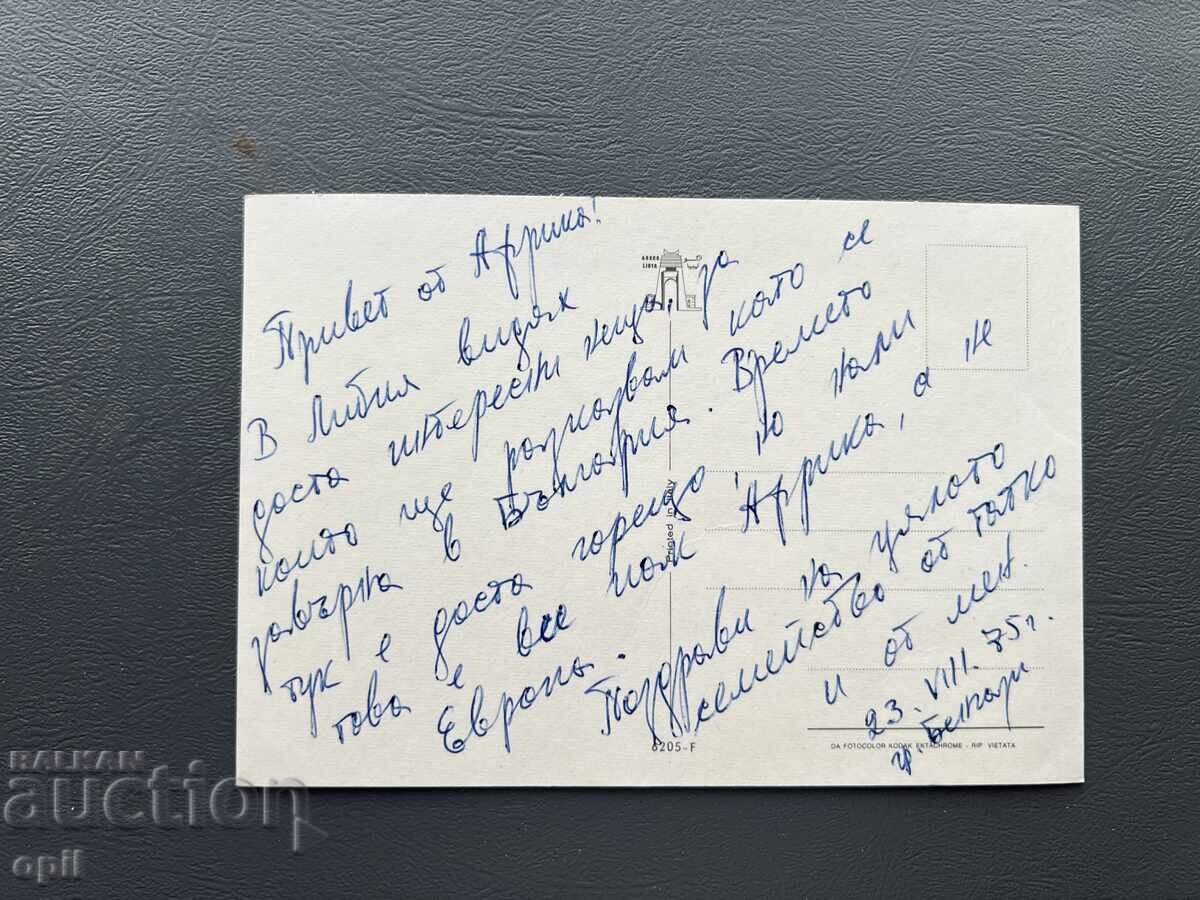 Привет от Африка!
В Либия видях
доста интересни неща, за
които ще разказвам като се
завърна в България. Времето
тук е доста горещо, но нали
това е все пак Африка, а не
Европа.
Поздрави на цялото
семейство от татко
и от мен.
23. VIII. 75 г.
гр. Бенгази
LIBYA
Printed in Italy
6205-F
DA FOTOCOLOR KODAK EKTACHROME - RIP. VIETATA
BALKAN
auction
opil